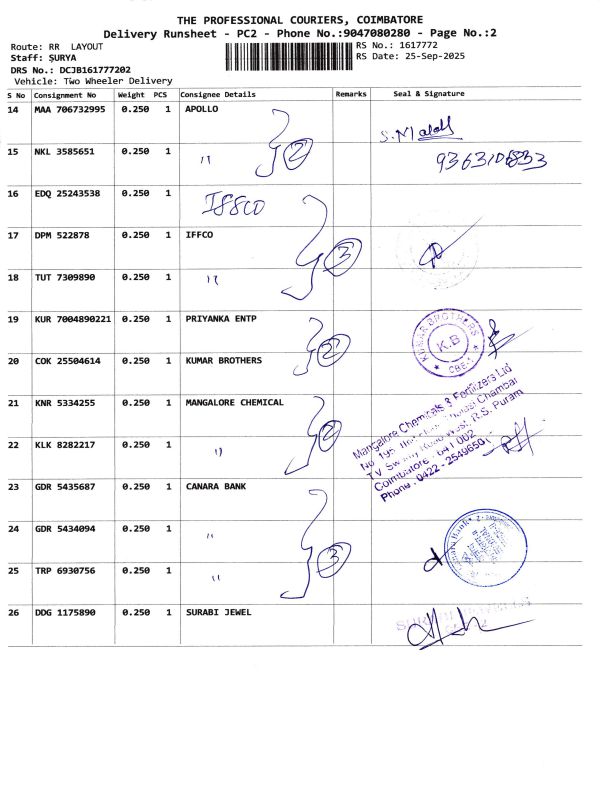 THE PROFESSIONAL COURIERS, COIMBATORE
Delivery Runsheet - PC2 - Phone No.:9047080280 - Page No.:2
Route: RR LAYOUT
RS No.: 1617772
Staff: SURYA
RS Date: 25-Sep-2025
DRS No.: DCJB161777202
Vehicle: Two Wheeler Delivery
S No Consignment No Weight PCS Consignee Details Remarks Seal & Signature
14 MAA 706732995 0.250 1 APOLLO
15 NKL 3585651 0.250 1 " 2 9363106833
16 EDQ 25243538 0.250 1 IFFCO
17 DPM 522878 0.250 1 IFFCO 3
18 TUT 7309890 0.250 1 "
19 KUR 7004890221 0.250 1 PRIYANKA ENTP KUMAR BROTHERS K.B CBE-1
20 COK 25504614 0.250 1 KUMAR BROTHERS 2
21 KNR 5334255 0.250 1 MANGALORE CHEMICAL 2
Mangalore Chemicals & Fertilizers Ltd
No 195, Chambar
T.V. Swamy Road West, R.S. Puram
Coimbatore - 641 002
Phone: 0422 - 2549650
22 KLK 8282217 0.250 1 "
23 GDR 5435687 0.250 1 CANARA BANK
24 GDR 5434094 0.250 1 " 3 Canara Bank
25 TRP 6930756 0.250 1 "
26 DDG 1175890 0.250 1 SURABI JEWEL